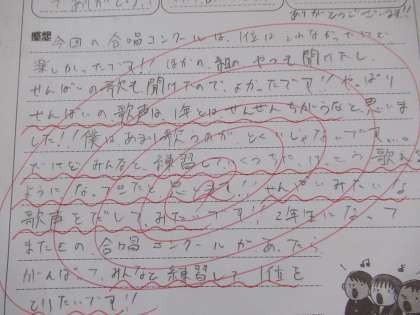 ありがとうございます!!
感想 今回の合唱コンクールは、1位はとれなかったけど
楽しかったです!! ほかの組のやつも聞けたし、
せんぱいの歌も聞けたので、よかったです!! やっぱり
せんぱいの歌声は、1年とはぜんぜんちがうなと思いま
した!! 僕はあまり歌うのがとくいじゃないです…。
だけどみんなと、練習していくうちに、けっこう歌える
ようになったと思います!! せんぱいみたいな
歌声をだしてみたいです!! 2年生になって
またこの合唱コンクールがあったら
がんばって、みんなと練習して1位を
とりたいです!!